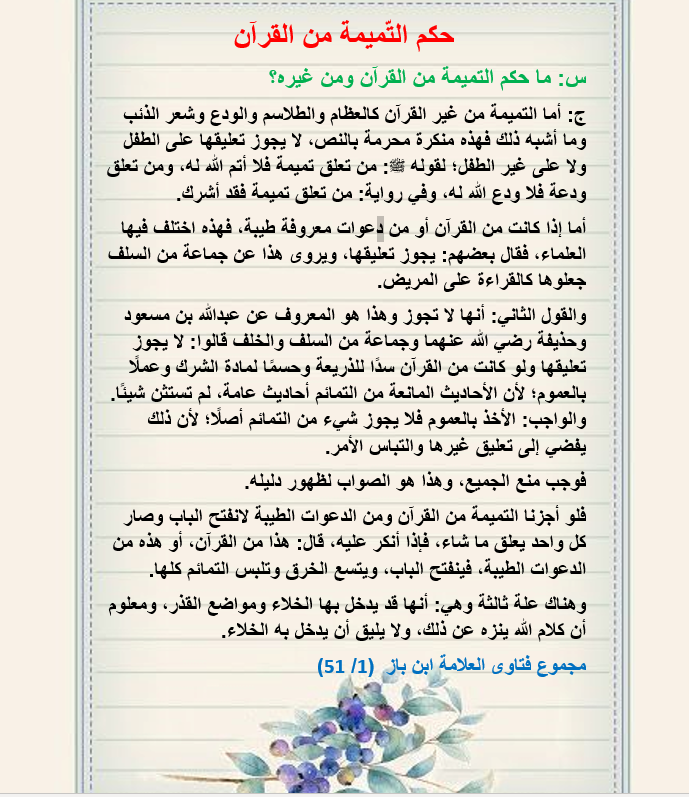 حكم التّميمة من القرآن
س: ما حكم التميمة من القرآن ومن غيره؟
ج: أما التميمة من غير القرآن كالعظام والطلاسم والودع وشعر الذئب
وما أشبه ذلك فهذه منكرة محرمة بالنص، لا يجوز تعليقها على الطفل
ولا على غير الطفل؛ لقوله ﷺ: من تعلق تميمة فلا أتم الله له، ومن تعلق
ودعة فلا ودع الله له، وفي رواية: من تعلق تميمة فقد أشرك.
أما إذا كانت من القرآن أو من دعوات معروفة طيبة، فهذه اختلف فيها
العلماء، فقال بعضهم: يجوز تعليقها، ويروى هذا عن جماعة من السلف
جعلوها كالقراءة على المريض.
والقول الثاني: أنها لا تجوز وهذا هو المعروف عن عبدالله بن مسعود
وحذيفة رضي الله عنهما وجماعة من السلف والخلف قالوا: لا يجوز
تعليقها ولو كانت من القرآن سدًا للذريعة وحسمًا لمادة الشرك وعملًا
بالعموم؛ لأن الأحاديث المانعة من التمائم أحاديث عامة، لم تستثن شيئًا.
والواجب: الأخذ بالعموم فلا يجوز شيء من التمائم أصلًا؛ لأن ذلك
يفضي إلى تعليق غيرها والتباس الأمر.
فوجب منع الجميع، وهذا هو الصواب لظهور دليله.
فلو أجزنا التميمة من القرآن ومن الدعوات الطيبة لانفتح الباب وصار
كل واحد يعلق ما شاء، فإذا أنكر عليه، قال: هذا من القرآن، أو هذه من
الدعوات الطيبة، فينفتح الباب، ويتسع الخرق وتلبس التمائم كلها.
وهناك علة ثالثة وهي: أنها قد يدخل بها الخلاء ومواضع القذر، ومعلوم
أن كلام الله ينزه عن ذلك، ولا يليق أن يدخل به الخلاء.
مجموع فتاوى العلامة ابن باز (1/ 51)